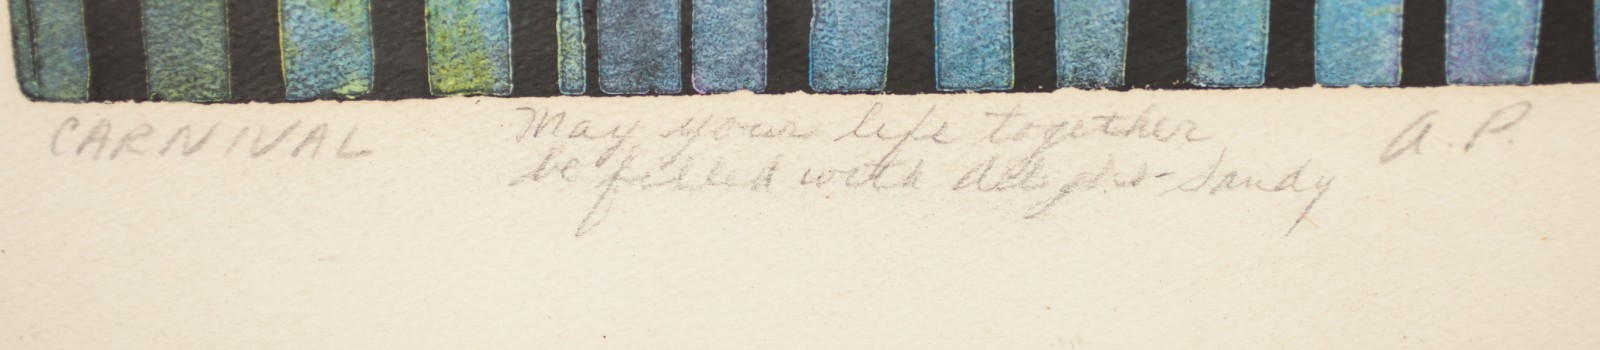 CARNIVAL
May your life together
be filled with delights - Sandy
A.P.